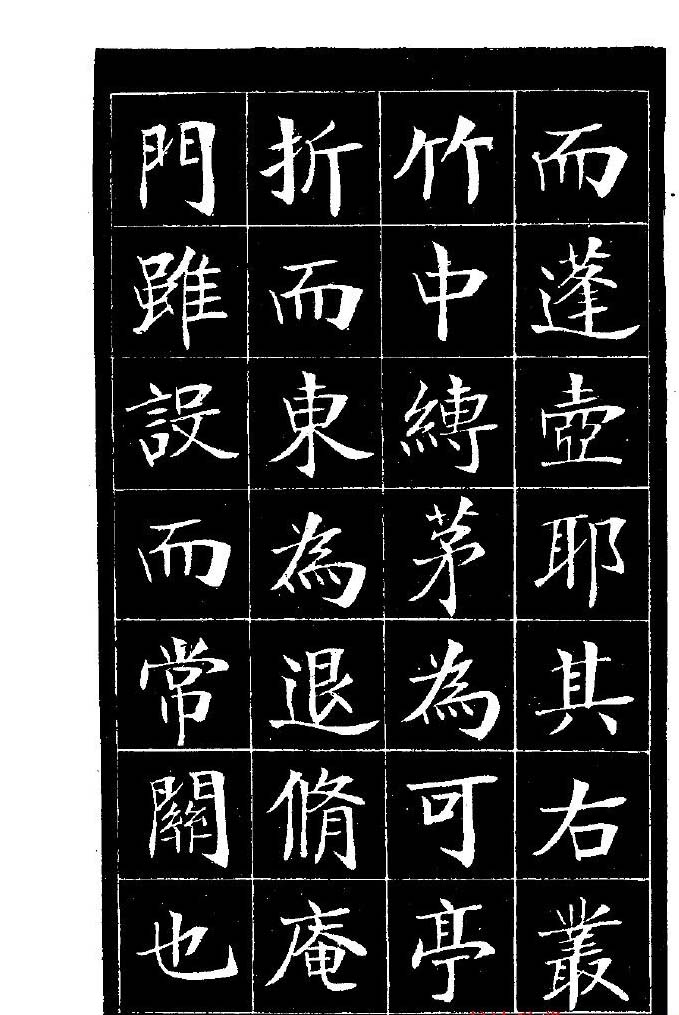 而蓬壺耶其右叢
竹中縛茅為可亭
折而東為退脩庵
門雖設而常關也